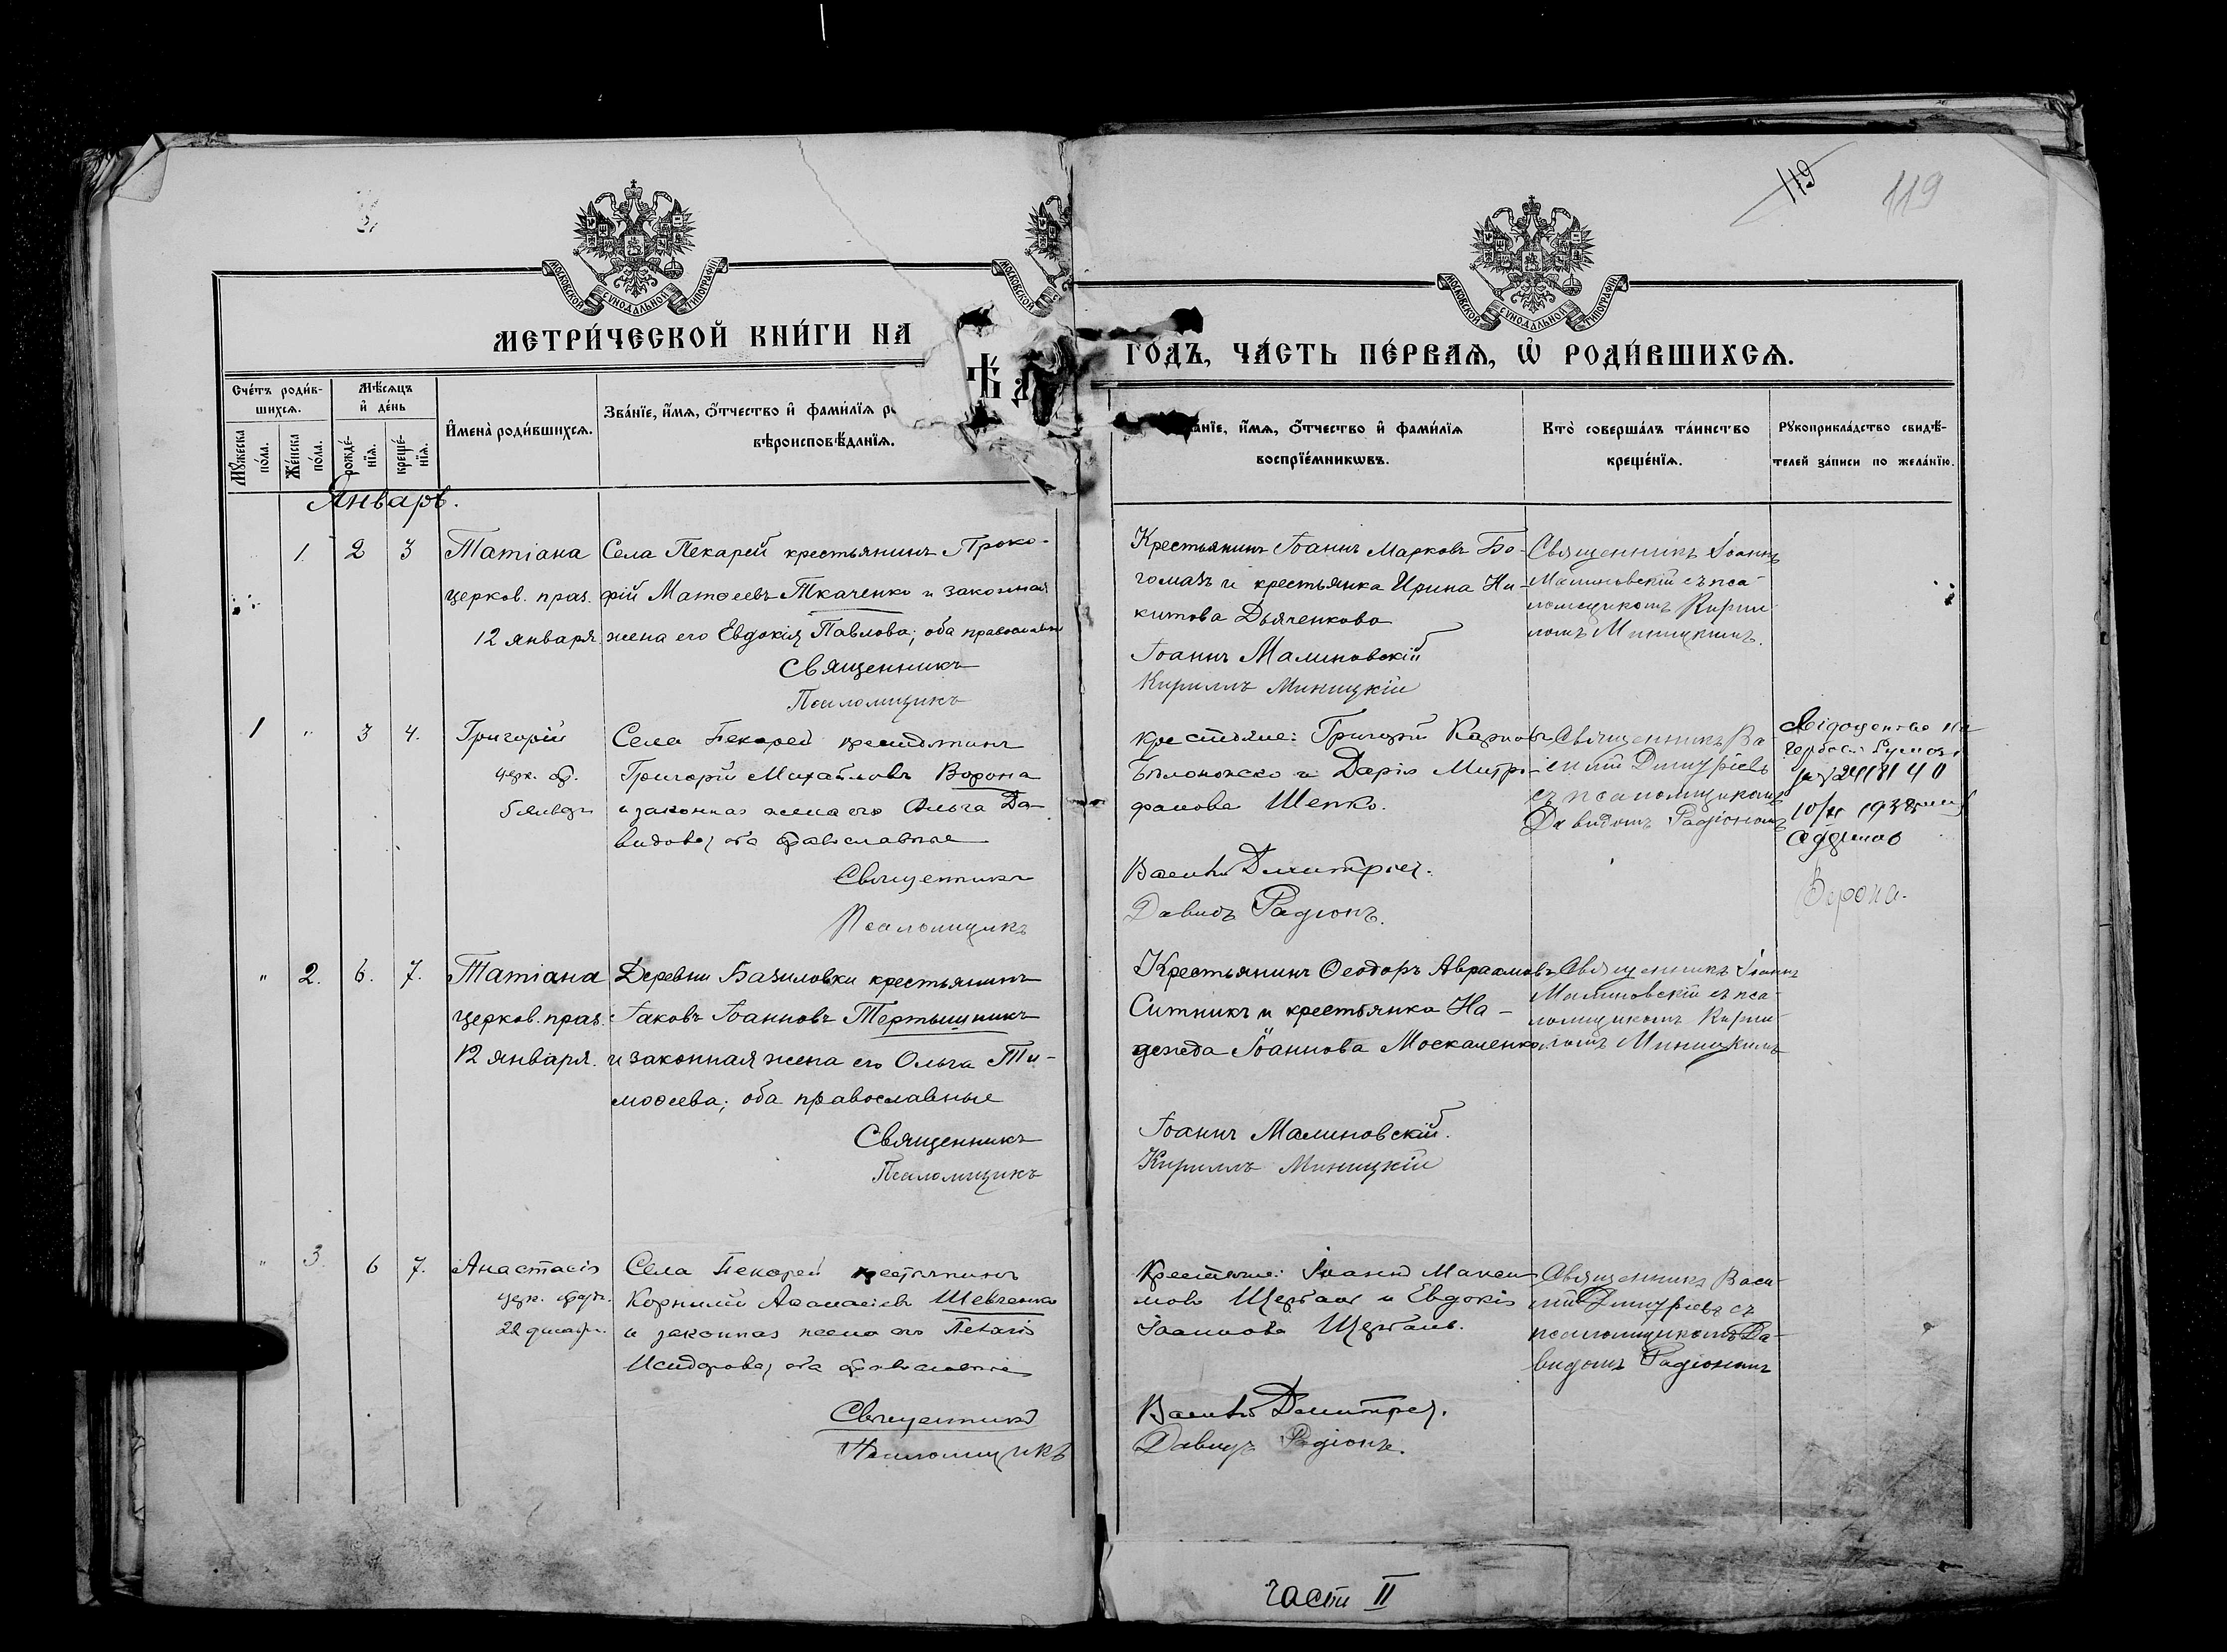 119
119
МОСКОВСКОЙ СѴНОДАЛЬНОЙ ТИПОГРАФІИ
МОСКОВСКОЙ
МОСКОВСКОЙ СѴНОДАЛЬНОЙ ТИПОГРАФІИ
МЕТРИ́ЧЕСКОЙ КНИ́ГИ НА
ГО́ДЪ, ЧА́СТЬ ПЕ́РВАѦ, Ѡ҆ РОДИ́ВШИХСѦ.
Сче́тъ роди́в-
шихсѧ.
Мꙋ́жеска
по́ла.
Же́нска
по́ла.
Мѣ́сѧцъ
и҆ де́нь
рожде́-
нїѧ.
креще́-
нїѧ.
И҆мена̀ роди́вшихсѧ.
Зва́нїе, и҆́мѧ, ѻ҆́тчество и҆ фами́лїѧ
вѣроисповѣ́данїѧ.
и҆́мѧ, ѻ҆́тчество и҆ фами́лїѧ
воспрїе́мникѡвъ.
Кто̀ соверша́лъ та́инство
креще́нїѧ.
Рꙋкоприкла́дство свидѣ́-
телей за́писи по жела́нїю.
Январь.
1. 2 3
Татіана
церков. праз.
12 января
Села Пекарей крестьянинъ Проко-
фій Матѳеевъ Ткаченко и законная
жена его Евдокія Павлова; оба православн
Священникъ
Псаломщикъ
Крестьянинъ Іоаннъ Марковъ Бо-
гомазъ и крестьянка Ирина Ни-
китова Дьяченкова
Іоаннъ Малиновскій
Кириллъ Миницкій
Священникъ Іоаннъ
Малиновскій съ пса-
ломщикомъ Кирил-
ломъ Миницкимъ.
1 " 3 4.
Григорій
церк. пр.
5 января
Села Пекарей крестьянинъ
Григорій Михайловъ Ворона
и законная жена его Ольга Да-
видова, оба православные
Священникъ
Псаломщикъ
Крестьяне: Григорій Карповъ
и Дарія Митро-
фанова Шепко.
Василій Димитріев.
Давидъ Радіонъ.
Священникъ Ва-
силій Димитріевъ
съ псаломщикомъ
Давидомъ Радіономъ
Ворона.
" 2. 6. 7.
Татіана
церков. праз.
12 января.
Деревни Базиловки крестьянинъ
Іаковъ Іоанновъ Тертышникъ
и законная жена его Ольга Ти-
моѳеева; оба православные
Священникъ
Псаломщикъ
Крестьянинъ Ѳеодоръ Авраамовъ
Ситникъ и крестьянка На-
дежда Іоаннова Москаленкова
Іоаннъ Малиновскій.
Кириллъ Миницкій
Священникъ Іоаннъ
Малиновскій съ пса-
ломщикомъ Кирил-
ломъ Миницкимъ
" 3. 6 7.
Анастасія
22 декабр.
Села Пекарей крестьянинъ
Корнилій Аѳанасіевъ Шевченко
и законная жена его Пелагія
Исидорова, оба православные
Священникъ
Псаломщикъ
Крестьяне: Іоаннъ Макси-
мовъ и Евдокія
Іоаннова
Василій Димитріев.
Давидъ Радіонъ.
Священникъ Васи-
лій Димитріевъ съ
псаломщикомъ Да-
видомъ Радіономъ
части II